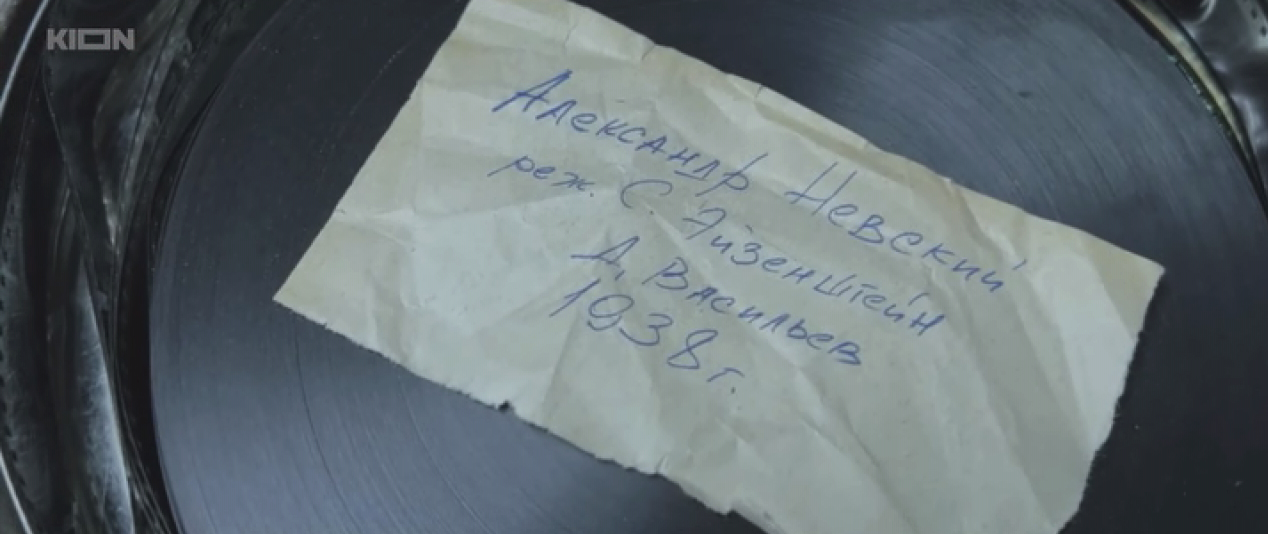 KION
Александр Невский
реж. С. Эйзенштейн
Д. Васильев
1938 г.